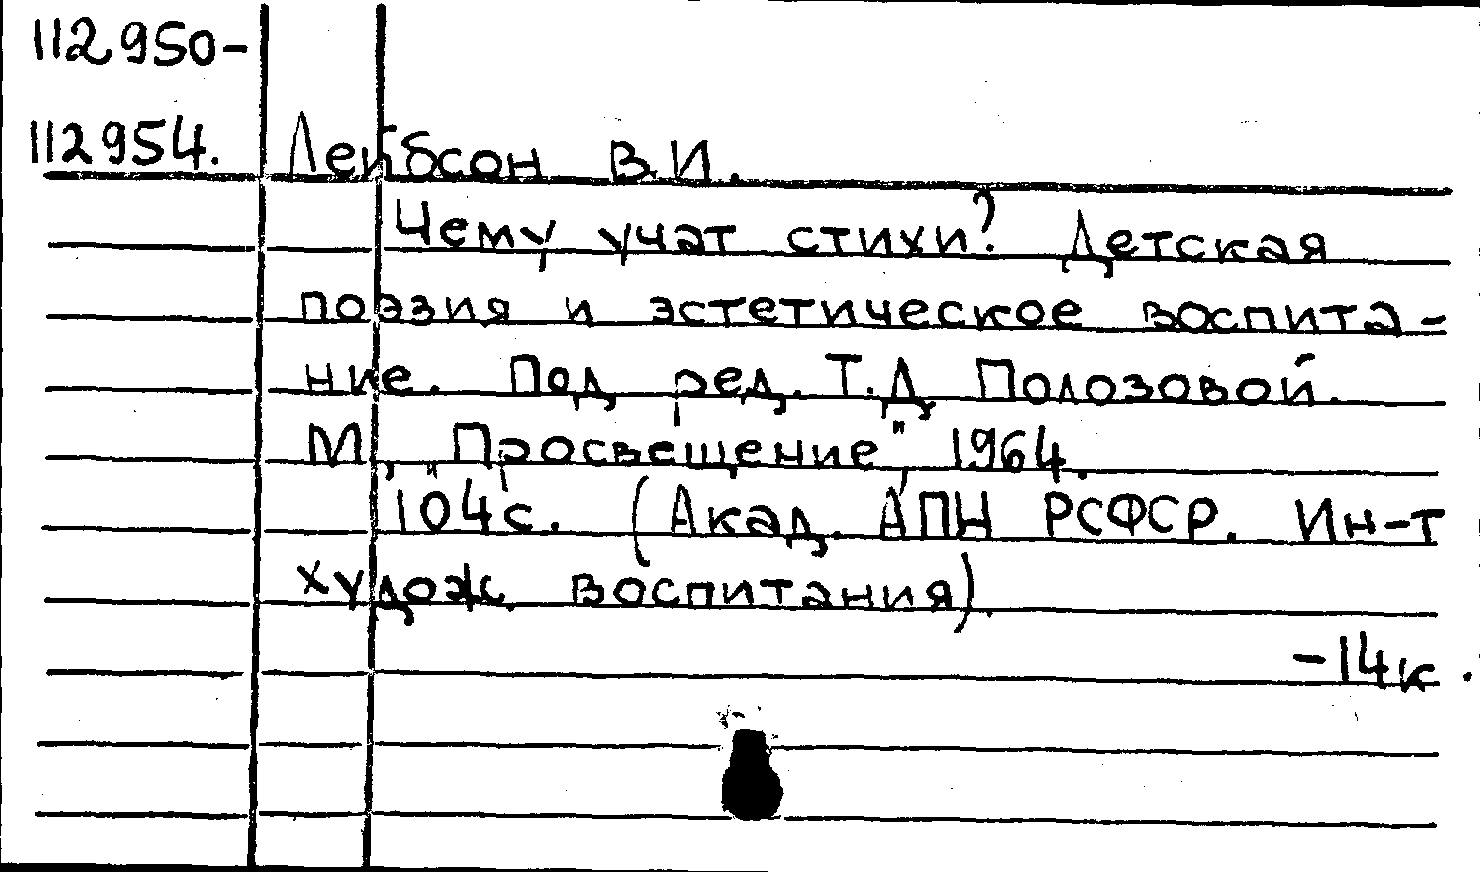 112950-
112954. Лейбсон В.И.
Чему учат стихи? Детская
поэзия и эстетическое воспита-
ние. Под ред. Т.Д Полозовой.
М, „Просвещение", 1964.
104с. (Акад. АПН РСФСР. Ин-т
худож. воспитания).
-14к.